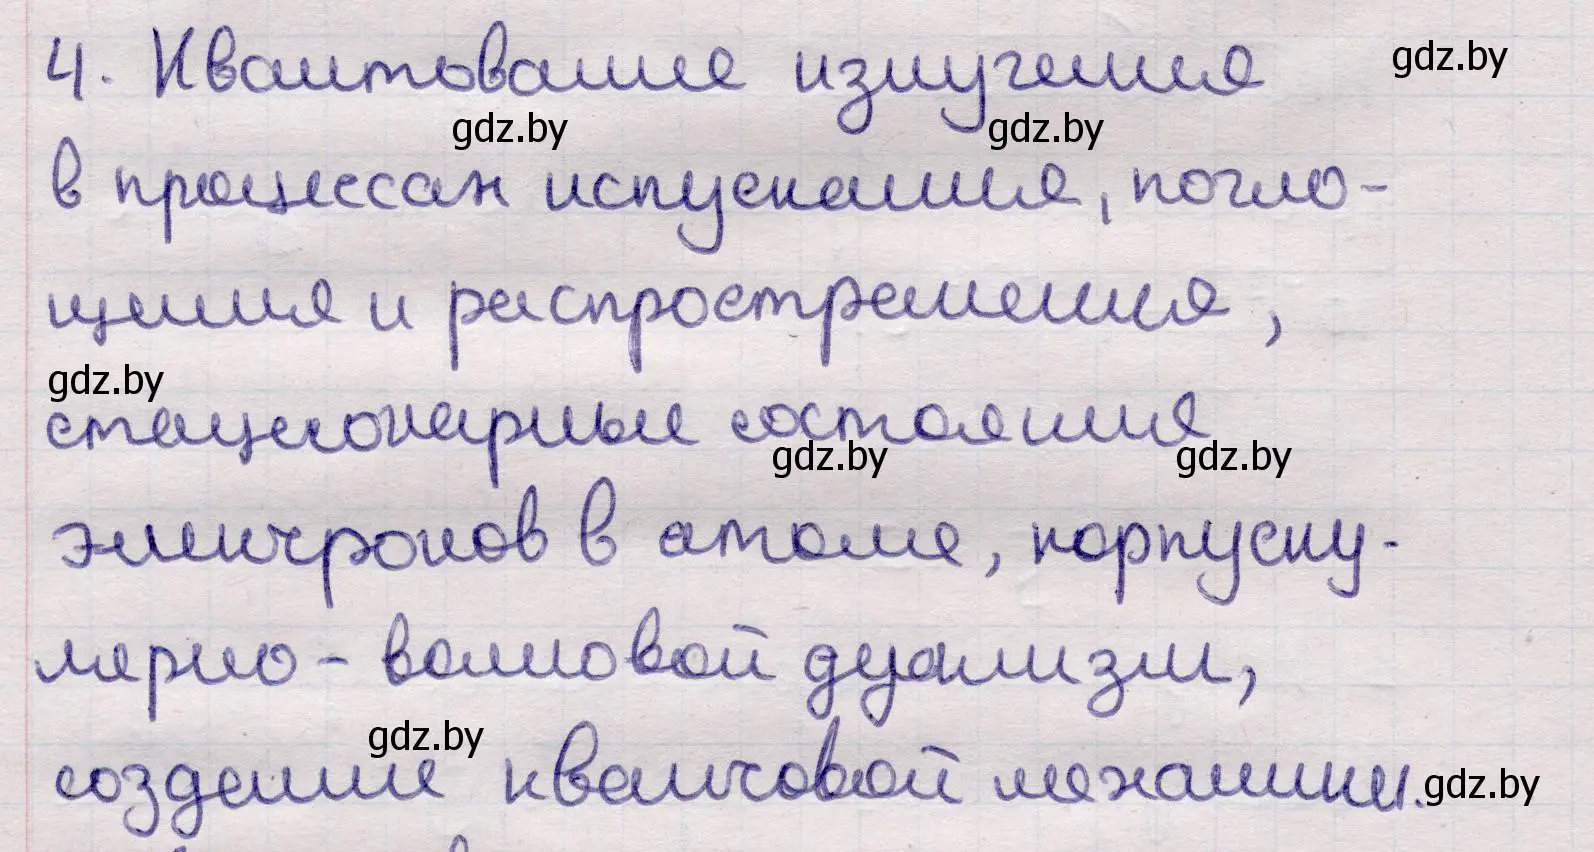 4. Квантование излучения
gdz.by
gdz.by gdz.by
в процессах испускания, погло-
щения и распространения,
gdz.by
стационарные состояния
gdz.by gdz.by
электронов в атоме, корпуску-
лярно-волновой дуализм,
gdz.by
создание квантовой механики.
gdz.by